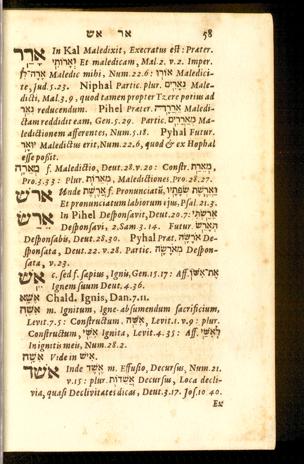 אר אש 58
אָרַר In Kal Maledixit, Execratus est: Prater.
וְאָרוֹתִי Et maledicam, Mal.2.v.2. Imper.
אָרָה־לִּי Maledic mihi, Num.22.6: אוֹרוּ Maledici-
te, Jud.5.23. Niphal Partic. plur. נֵאָרִים Male-
dicti, Mal.3,9, quod tamen propter Tzere potius ad
reducendum. Pihel Prater. אֵרֲרָהּ Maledi-
ctam reddidit eam, Gen.5.29. Partic. מְאָרֲרִים Ma-
ledictionem afferentes, Num.5.18. Pyhal Futur.
יוּאָר Maledictus erit, Num.22.6, quod & ex Hophal
esse possit.
מְאֵרָה f. Maledictio, Deut.28.v.20: Constr. מְאֵרַת,
Pro.3.33: Plur. מְאֵרוֹת, Maledictiones, Pro.28.27.
ארש Unde אֲרֶשֶׁת f. Pronunciatũ, וַאֲרֶשֶׁת שְׂפָתָיו
Et pronunciatum labiorum ejus, Psal.21.3.
ארש In Pihel Desponsavit, Deut.20.7:
אֵרַשְׂתִּי Desponsavi, 2.Sam.3.14. Futur. תְאָרֵשׂ
Desponsabis, Deut.28.30. Pyhal Prat. אֹרָשָׂה De-
sponsata, Deut.22.v.28. Partic. מְאֹרָשָׂה Despon-
sata, v.23.
אֵשׁ c. sed f. sapius, Ignis, Gen.15.17: Aff. אֶת־אִשּׁוֹ
Ignem suum Deut.4.36.
אֶשָּׁא Chald. Ignis, Dan.7.11.
אִשֶּׁה m. Ignitum, Igne-absumendum sacrificium,
Levit.7.5: Constructum. אִשֵּׁה, Levit.1.v.9: plur.
Constructum, אִשֵּׁי Ignita, Levit.4.35: Aff. לְאִשַּׁי
In ignitis meis, Num.28.2.
אִשָּׁה Vide in אִישׁ.
אשד Inde אֶשֶׁד m. Effusio, Decursus, Num.21.
v.15: plur. אֲשֵׁדוֹת Decursus, Loca decli-
via, quasi Declivitates dicas, Deut.3.17. Jos.10 40.
Ex